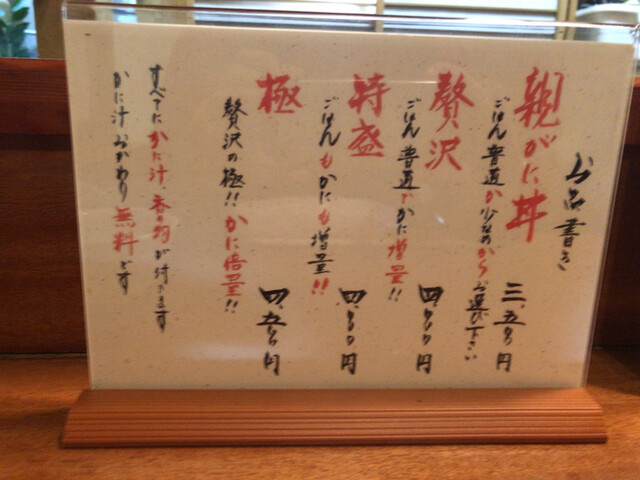 お品書き
親がに丼
ごはん普通か少なめからお選び下さい
三、五〇〇円
贅沢
ごはん普通でかに増量!!
四、〇〇〇円
特盛
ごはんもかにも増量!!
四、〇〇〇円
極
贅沢の極!!かに倍量!!
四、五〇〇円
すべてにかに汁、香の物が付きます
かに汁おかわり無料です